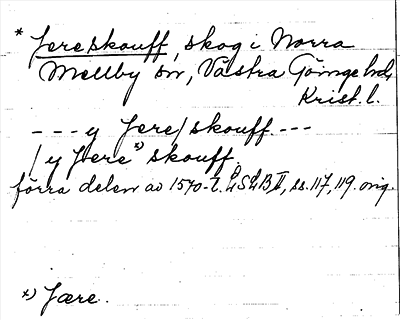 * Jereskouff, skog i Norra
Mellby sn, Västra Göinge hd,
Krist. l.
--- y Jere/skouff. ---
/ y Jere x) skouff.
förra delen av 1570-t. LSLB II, ss. 117, 119. orig.
x) Jære.